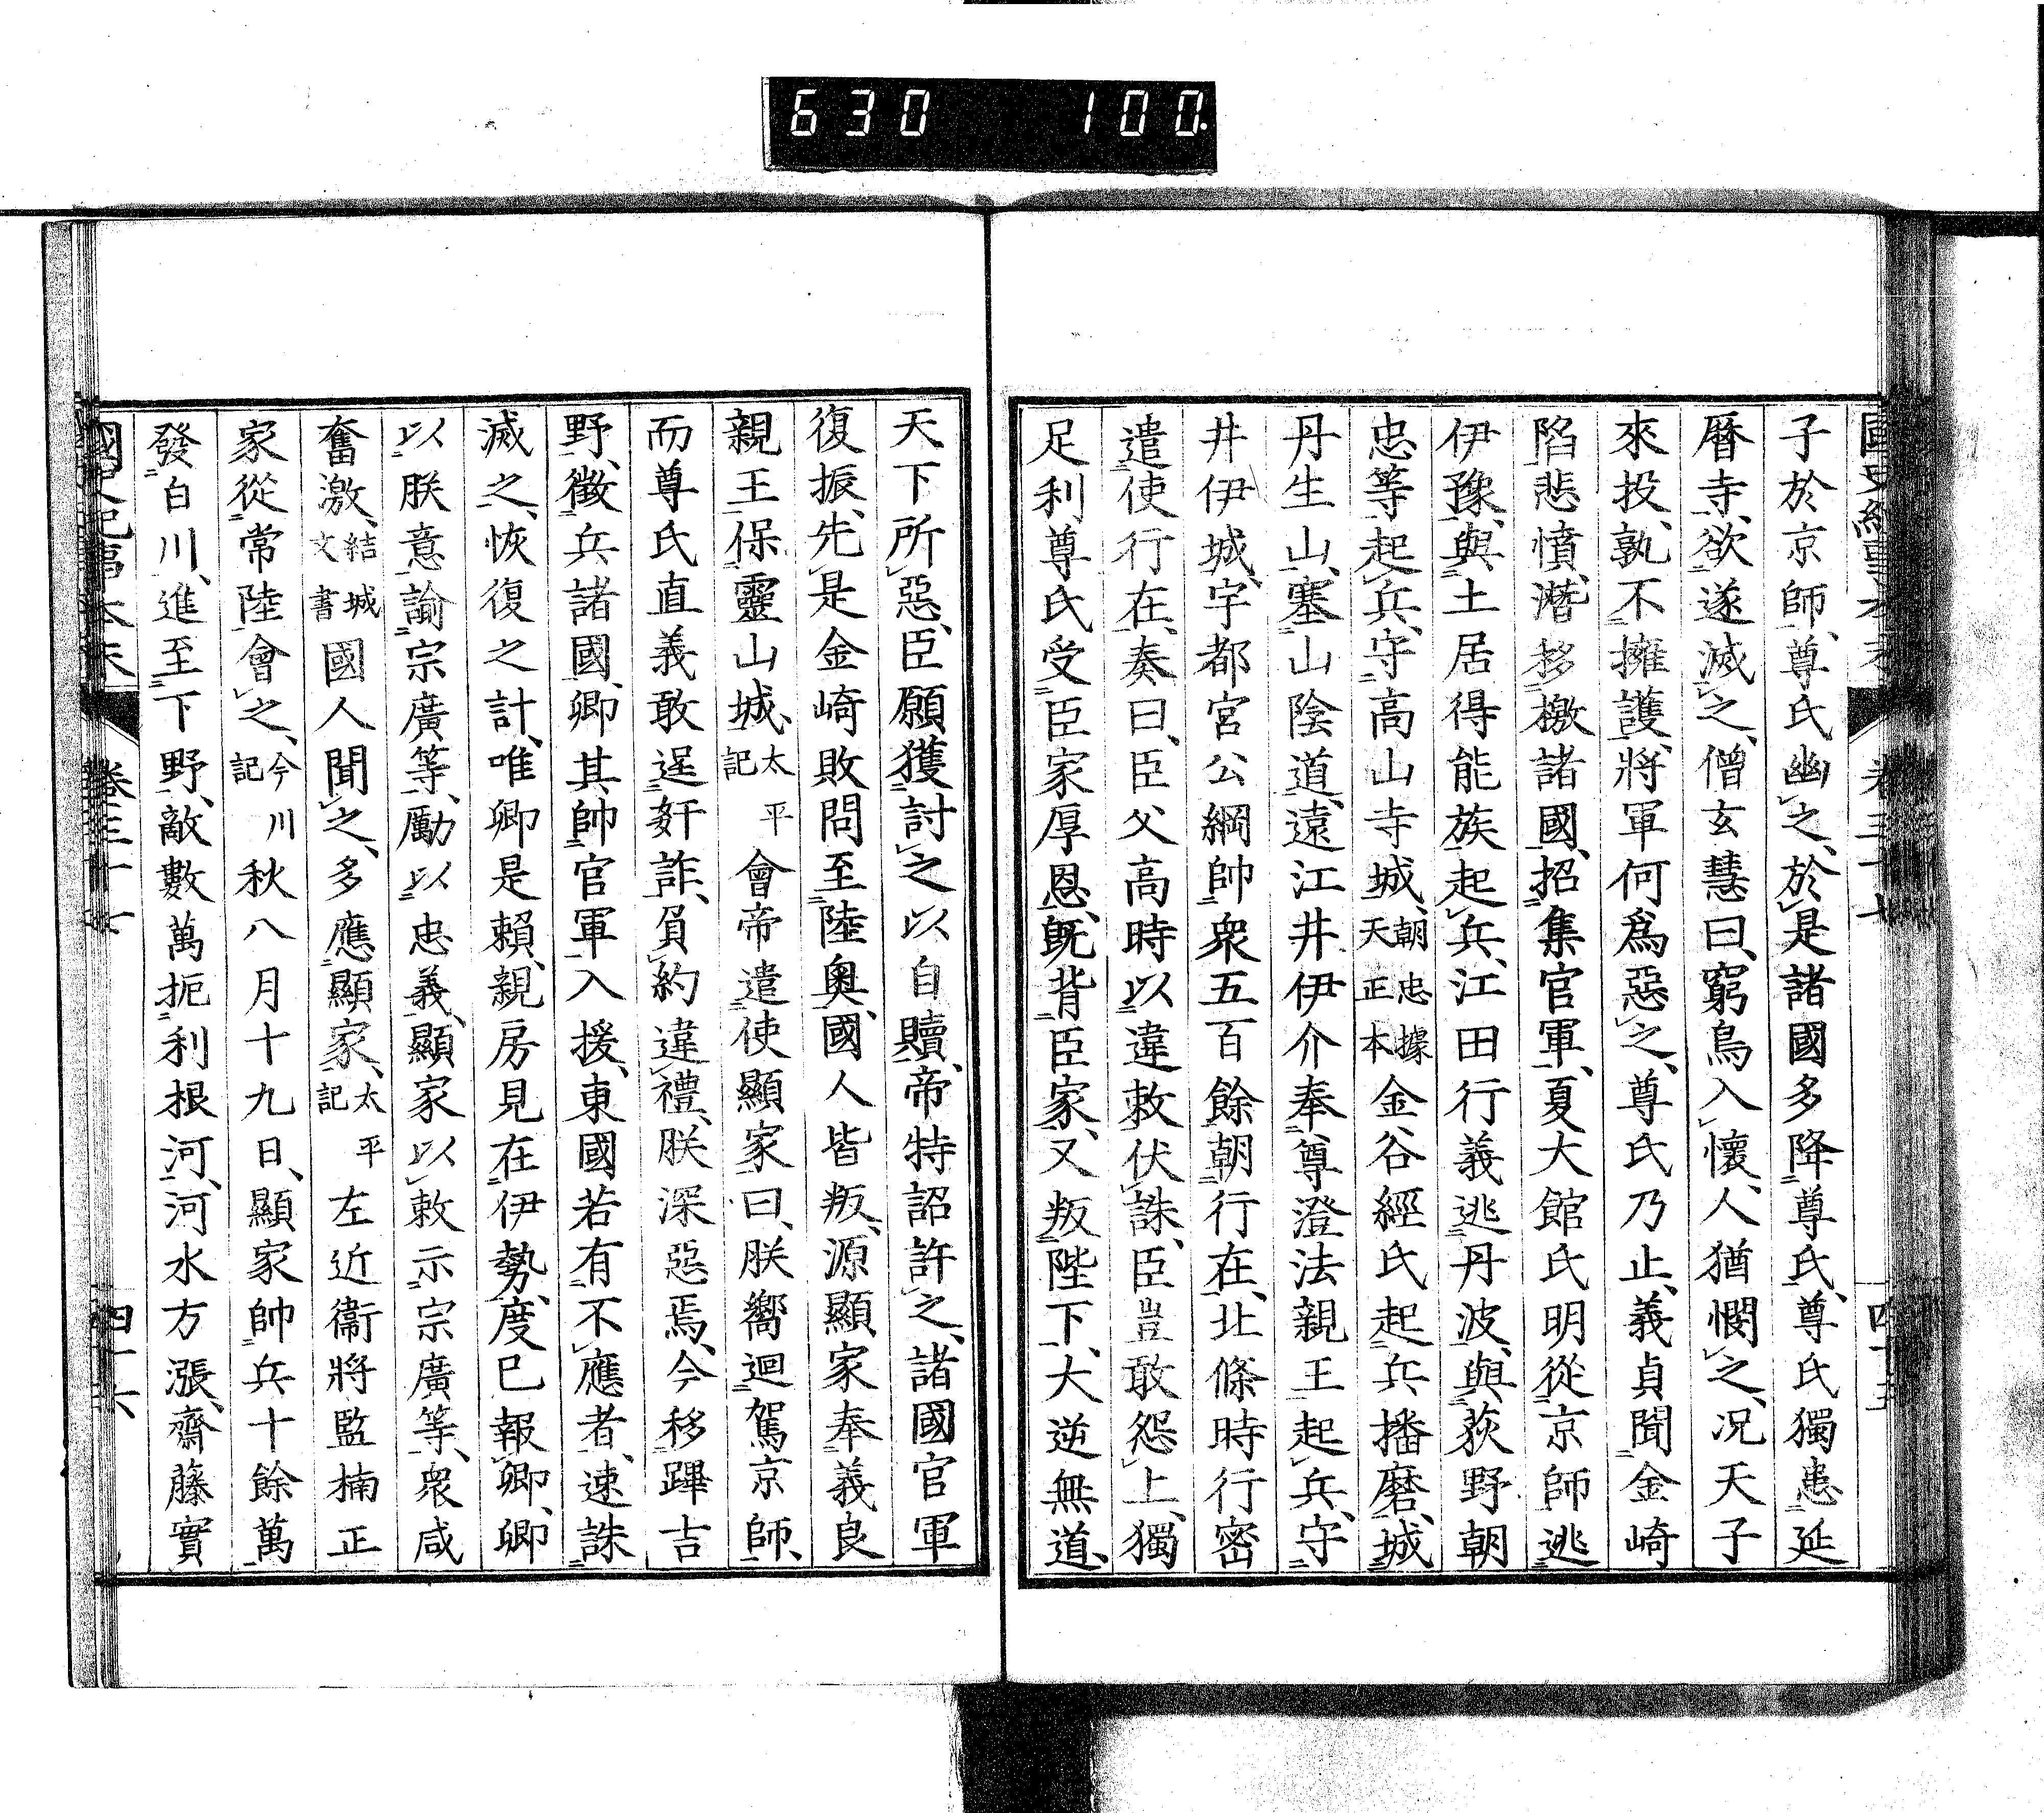 630 100.
子於京師、尊氏幽之、於是諸國多降尊氏、尊氏獨患延
曆寺、欲遂滅之、僧玄慧曰、窮鳥入懷、人猶憫之、况天子
來投、孰不擁護、將軍何爲惡之、尊氏乃止、義貞聞金崎
陷悲憤、潛移檄諸國、招集官軍、夏大館氏明從京師逃
伊豫、與土居得能族起兵、江田行義逃丹波、與荻野朝
忠等起兵、守高山寺城、朝忠據天正本金谷經氏起兵播磨、城
丹生山、塞山陰道、遠江井伊介奉尊澄法親王起兵、守
井伊城、宇都宮公綱帥衆五百餘朝行在、北條時行密
遣使行在、奏曰、臣父高時以違敕伏誅、臣豈敢怨上、獨
足利尊氏受臣家厚恩、既背臣家、又叛陛下、大逆無道、
天下所惡、臣願獲討之以自贖、帝特詔許之、諸國官軍
復振、先是金崎敗問至陸奧、國人皆叛、源顯家奉義良
親王保靈山城、太平記會帝遣使顯家曰、朕嚮迴駕京師、
而尊氏直義敢逞奸詐、負約違禮、朕深惡焉、今移蹕吉
野、徵兵諸國、卿其帥官軍入援、東國若有不應者、速誅
滅之、恢復之計、唯卿是賴、親房見在伊勢、度已報卿、卿
以朕意諭宗廣等、勵以忠義、顯家以敕示宗廣等、衆咸
奮激、結城文書國人聞之、多應顯家、太平記左近衞將監楠正
家從常陸會之、今川記秋八月十九日、顯家帥兵十餘萬
發白川、進至下野、敵數萬扼利根河、河水方漲、齋藤實
國史紀事本末 卷三十七 四十六